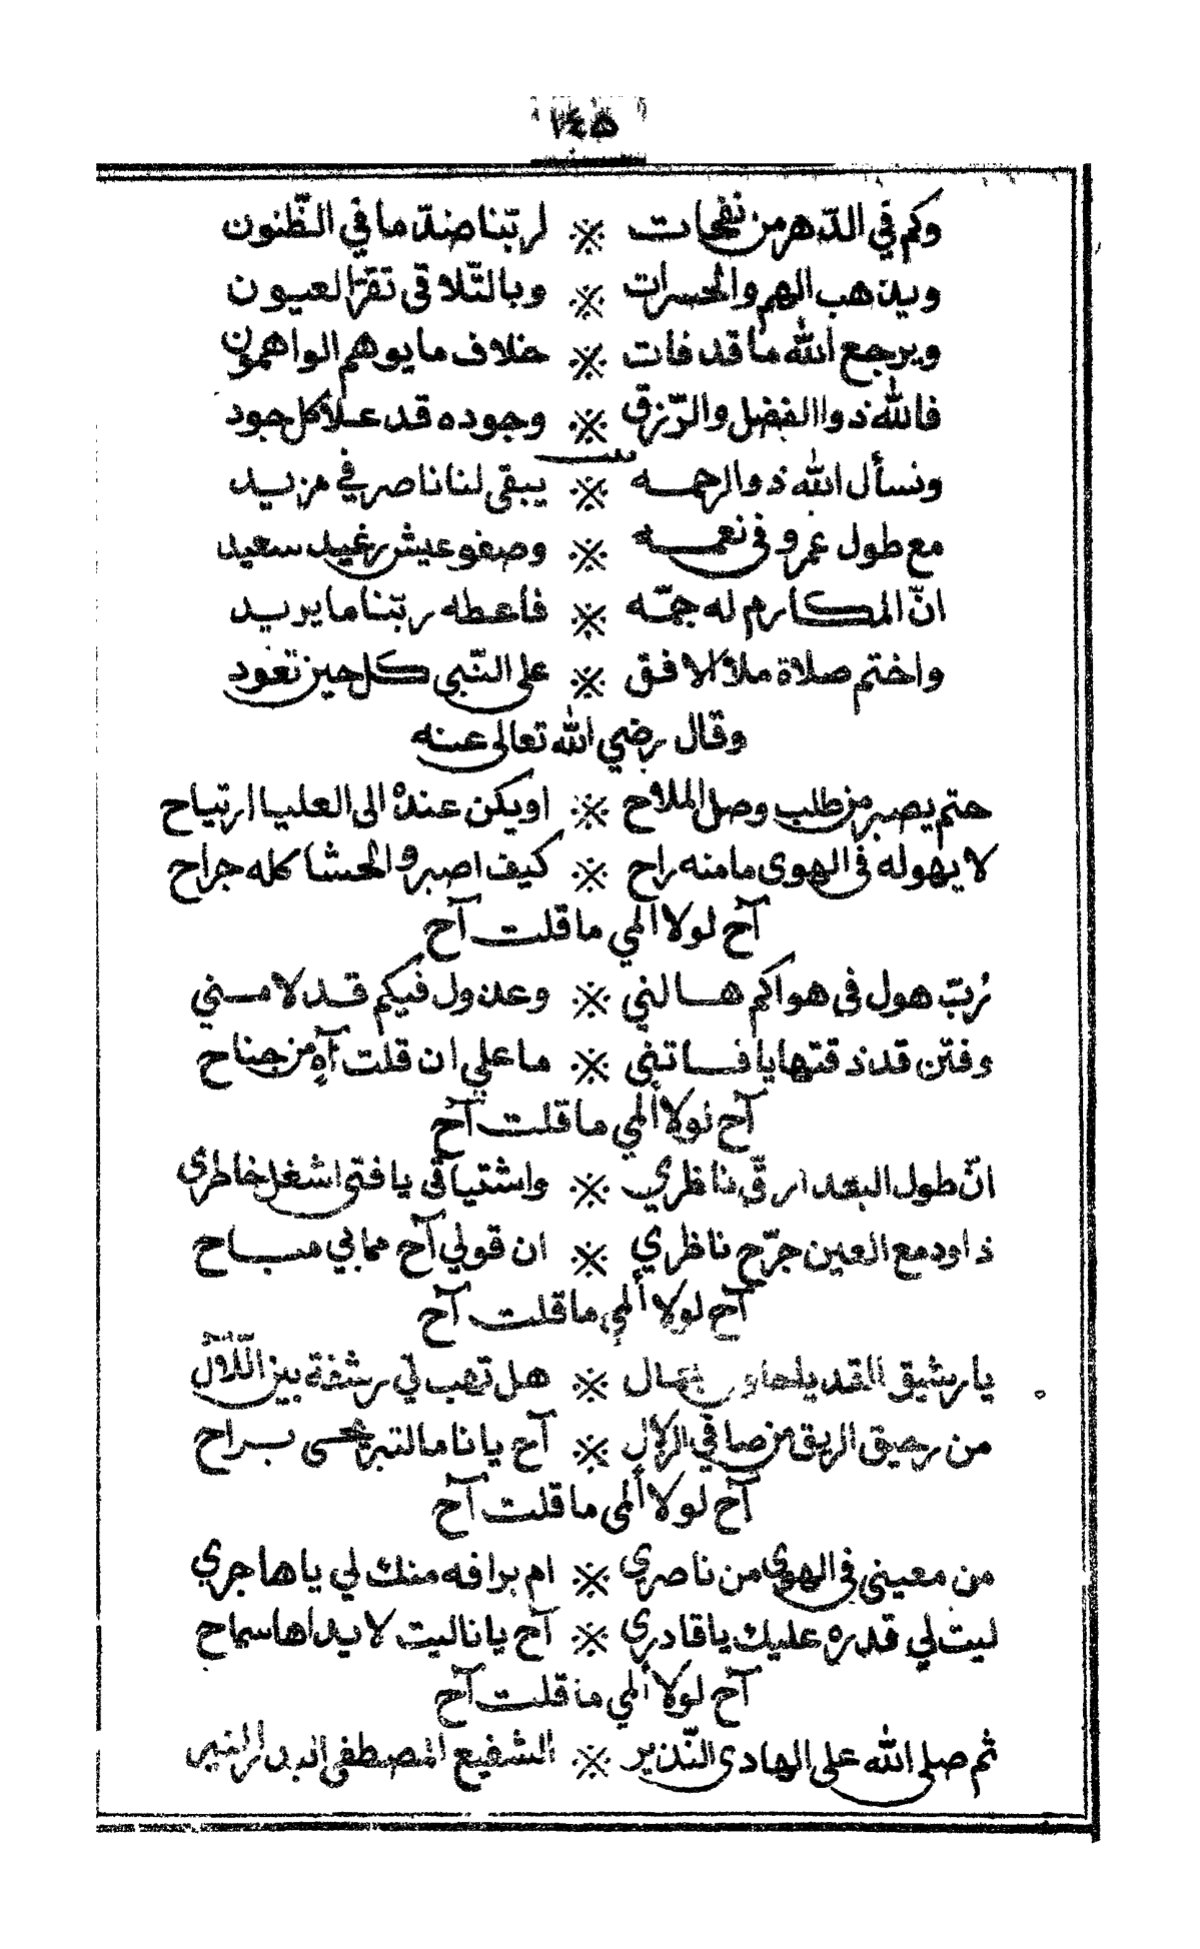 ١٤٥
وكم في الدّهر من نفحات ※ لربّنا ضدّ ما في الظّنون
ويذهب الهم والحسرات ※ وبالتّلاقى تقرّ العيون
ويرجع الله ما قد فات ※ خلاف ما يوهم الواهمون
فالله ذوا الفضل والرّزق ※ وجوده قد علا كل جود
ونسأل الله ذو الرحمه ※ يبقى لنا ناصر في مزيد
مع طول عمر وفى نعمه ※ وصفو عيش رغيد سعيد
انّ المكارم له جمّه ※ فأعطه ربّنا ما يريد
واختم صلاة ملأ الافق ※ على النّبي كل حين تعود
وقال رضي الله تعالى عنه
حتم يصبر من طلب وصل الملاح ※ او يكن عنده الى العليا ارتياح
لا يهوله فى الهوى ما منه راح ※ كيف اصبر والحشا كله جراح
آح لولا ألمي ما قلت آح
رُبّ هول فى هواكم هالني ※ وعذول فيكم قد لامني
وفتن قد ذقتها يا فاتني ※ ما علي ان قلت آه من جناح
آح لولا ألمي ما قلت آح
انّ طول البعد ارّق ناظري ※ واشتياقى يا فتى اشغل خاطري
ذا ودمع العين جرّح ناظري ※ ان قولي آح مما بي مباح
آح لولا ألمي ما قلت آح
يا رشيق القد يا حاوي ※ هل تهب لي رشفة بين اللّلال
من رحيق الريق من صافي الزلال ※ آح يا نا ما لتبريحى براح
آح لولا ألمى ما قلت آح
من معينى فى الهوي من ناصري ※ ام برافه منك لي يا هاجري
ليت لي قدره عليك يا قادري ※ آح يا نا ليت لا يداها سماح
آح لولا ألمي ما قلت آح
ثم صلى الله على الهادى النّذير ※ الشفيع المصطفى البدر المنير